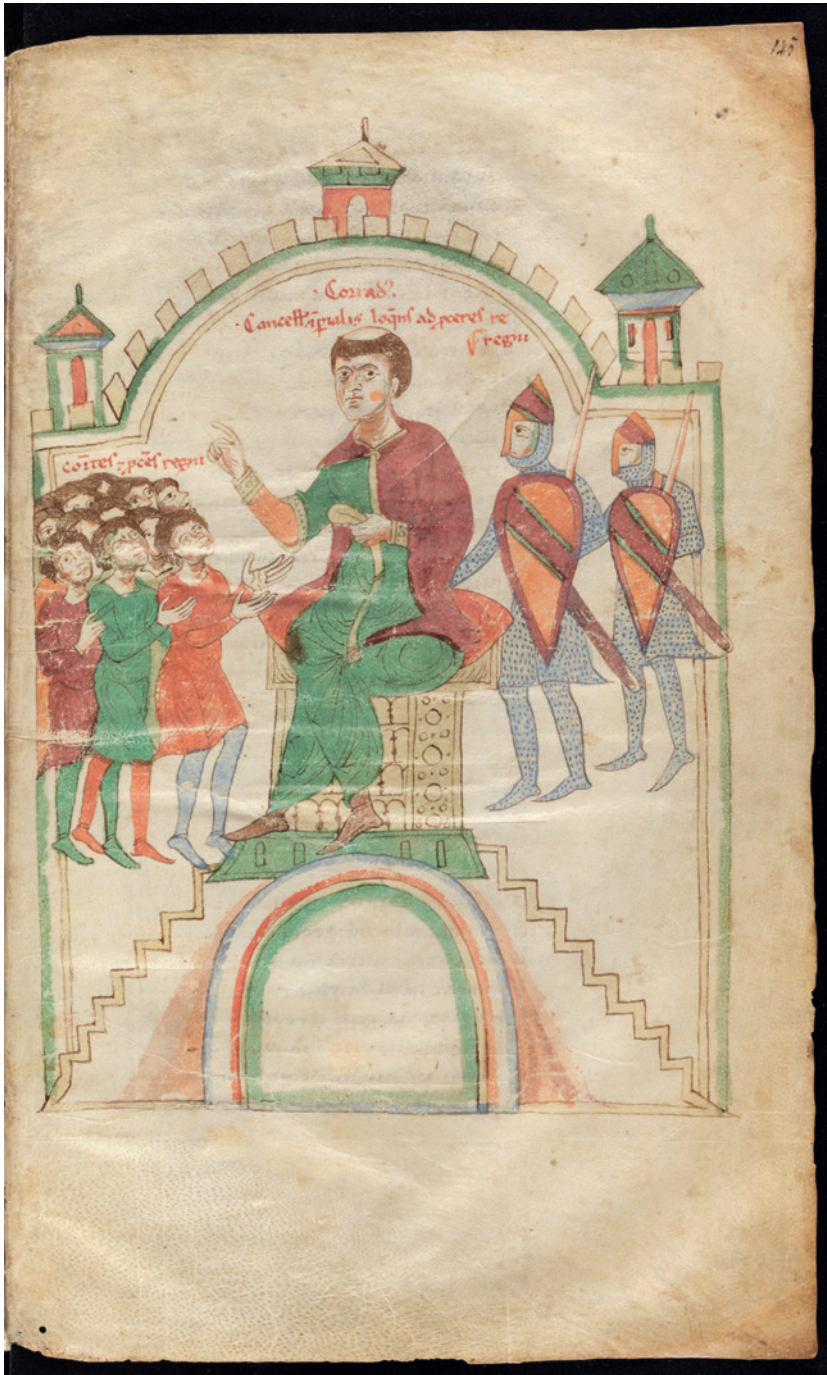 145
· Corrad᷒.
· Cancell̃ ĩpialis loq̃ns ad p̱ceres re
regni
com̃tes ⁊ p̱cẽs regni